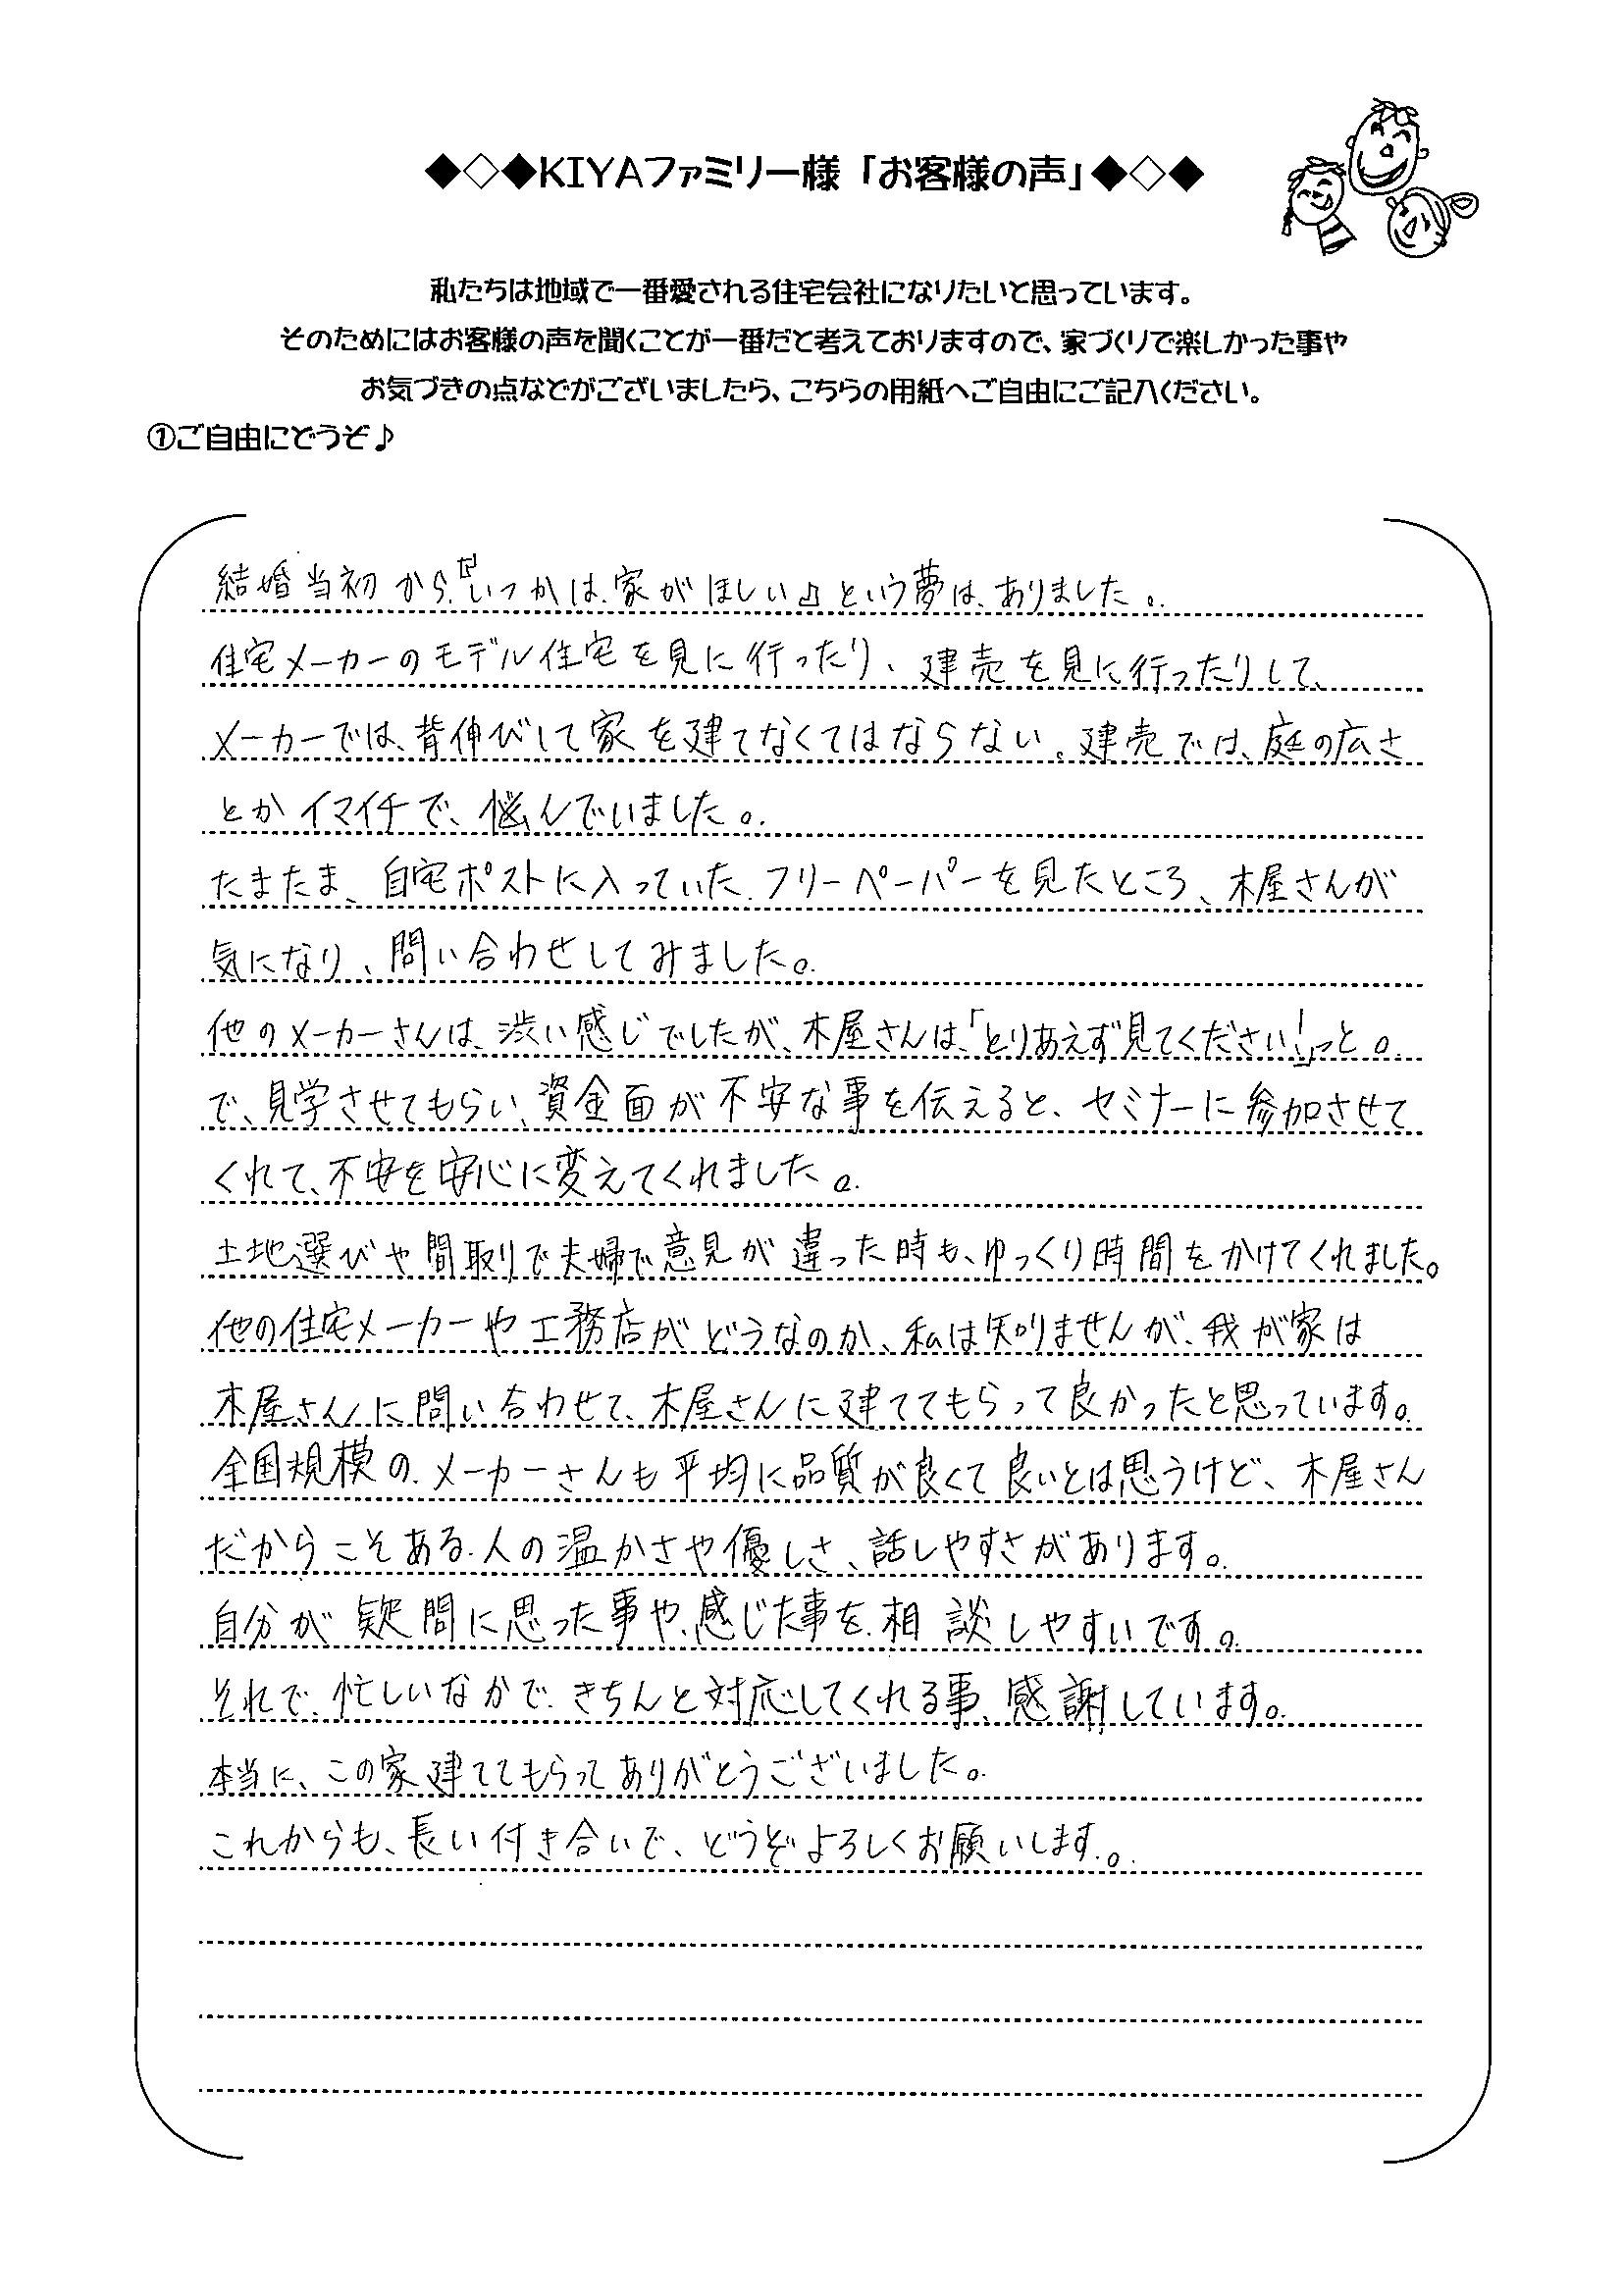 ◆◇◆KIYAファミリー様「お客様の声」◆◇◆
私たちは地域で一番愛される住宅会社になりたいと思っています。
そのためにはお客様の声を聞くことが一番だと考えておりますので、家づくりで楽しかった事や
お気づきの点などがございましたら、こちらの用紙へご自由にご記入ください。
①ご自由にどうぞ♪
結婚当初から、『いつかは、家がほしい』という夢は、ありました。
住宅メーカーのモデル住宅を見に行ったり、建売を見に行ったりして、
メーカーでは、背伸びして家を建てなくてはならない。建売では、庭の広さ
とかイマイチで、悩んでいました。
たまたま、自宅ポストに入っていた、フリーペーパーを見たところ、木屋さんが
気になり、問い合わせしてみました。
他のメーカーさんは、渋い感じでしたが、木屋さんは、「とりあえず見てください!」っと。
で、見学させてもらい、資金面が不安な事を伝えると、セミナーに参加させて
くれて、不安を安心に変えてくれました。
土地選びや間取りで夫婦で意見が違った時も、ゆっくり時間をかけてくれました。
他の住宅メーカーや工務店がどうなのか、私は知りませんが、我が家は
木屋さんに問い合わせて、木屋さんに建ててもらって良かったと思っています。
全国規模の、メーカーさんも平均に品質が良くて良いとは思うけど、木屋さん
だからこそある、人の温かさや優しさ、話しやすさがあります。
自分が疑問に思った事や、感じた事を、相談しやすいです。
それで、忙しいなかで、きちんと対応してくれる事、感謝しています。
本当に、この家建ててもらってありがとうございました。
これからも、長い付き合いで、どうぞよろしくお願いします。